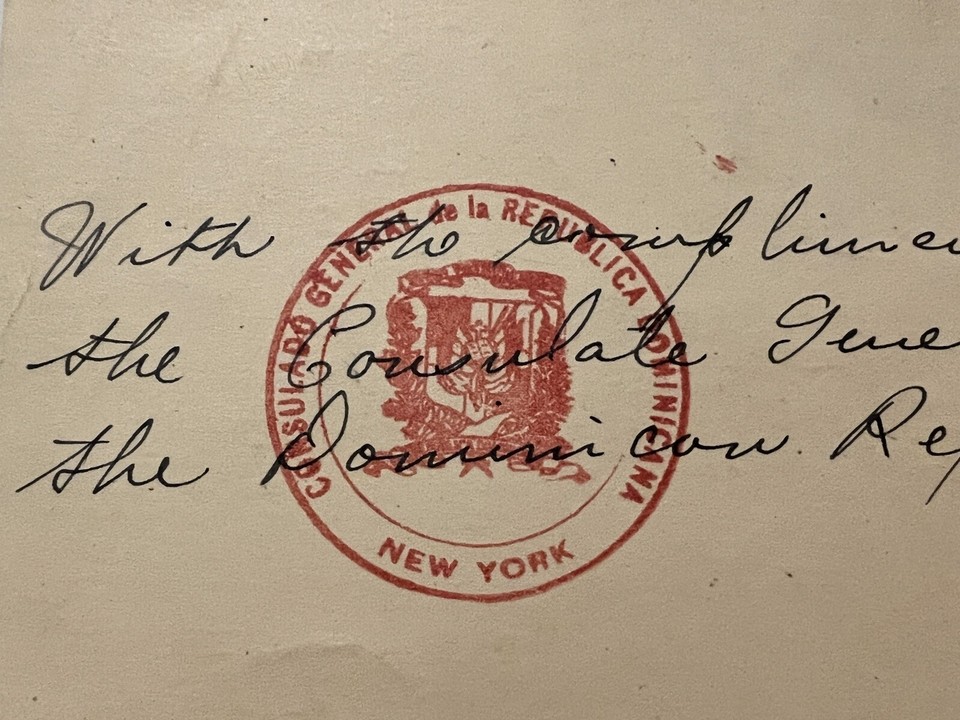 CONSULADO GENERAL de la REPUBLICA DOMINICANA
With the complimen
the Consulate Gene
the Dominican Rep
NEW YORK